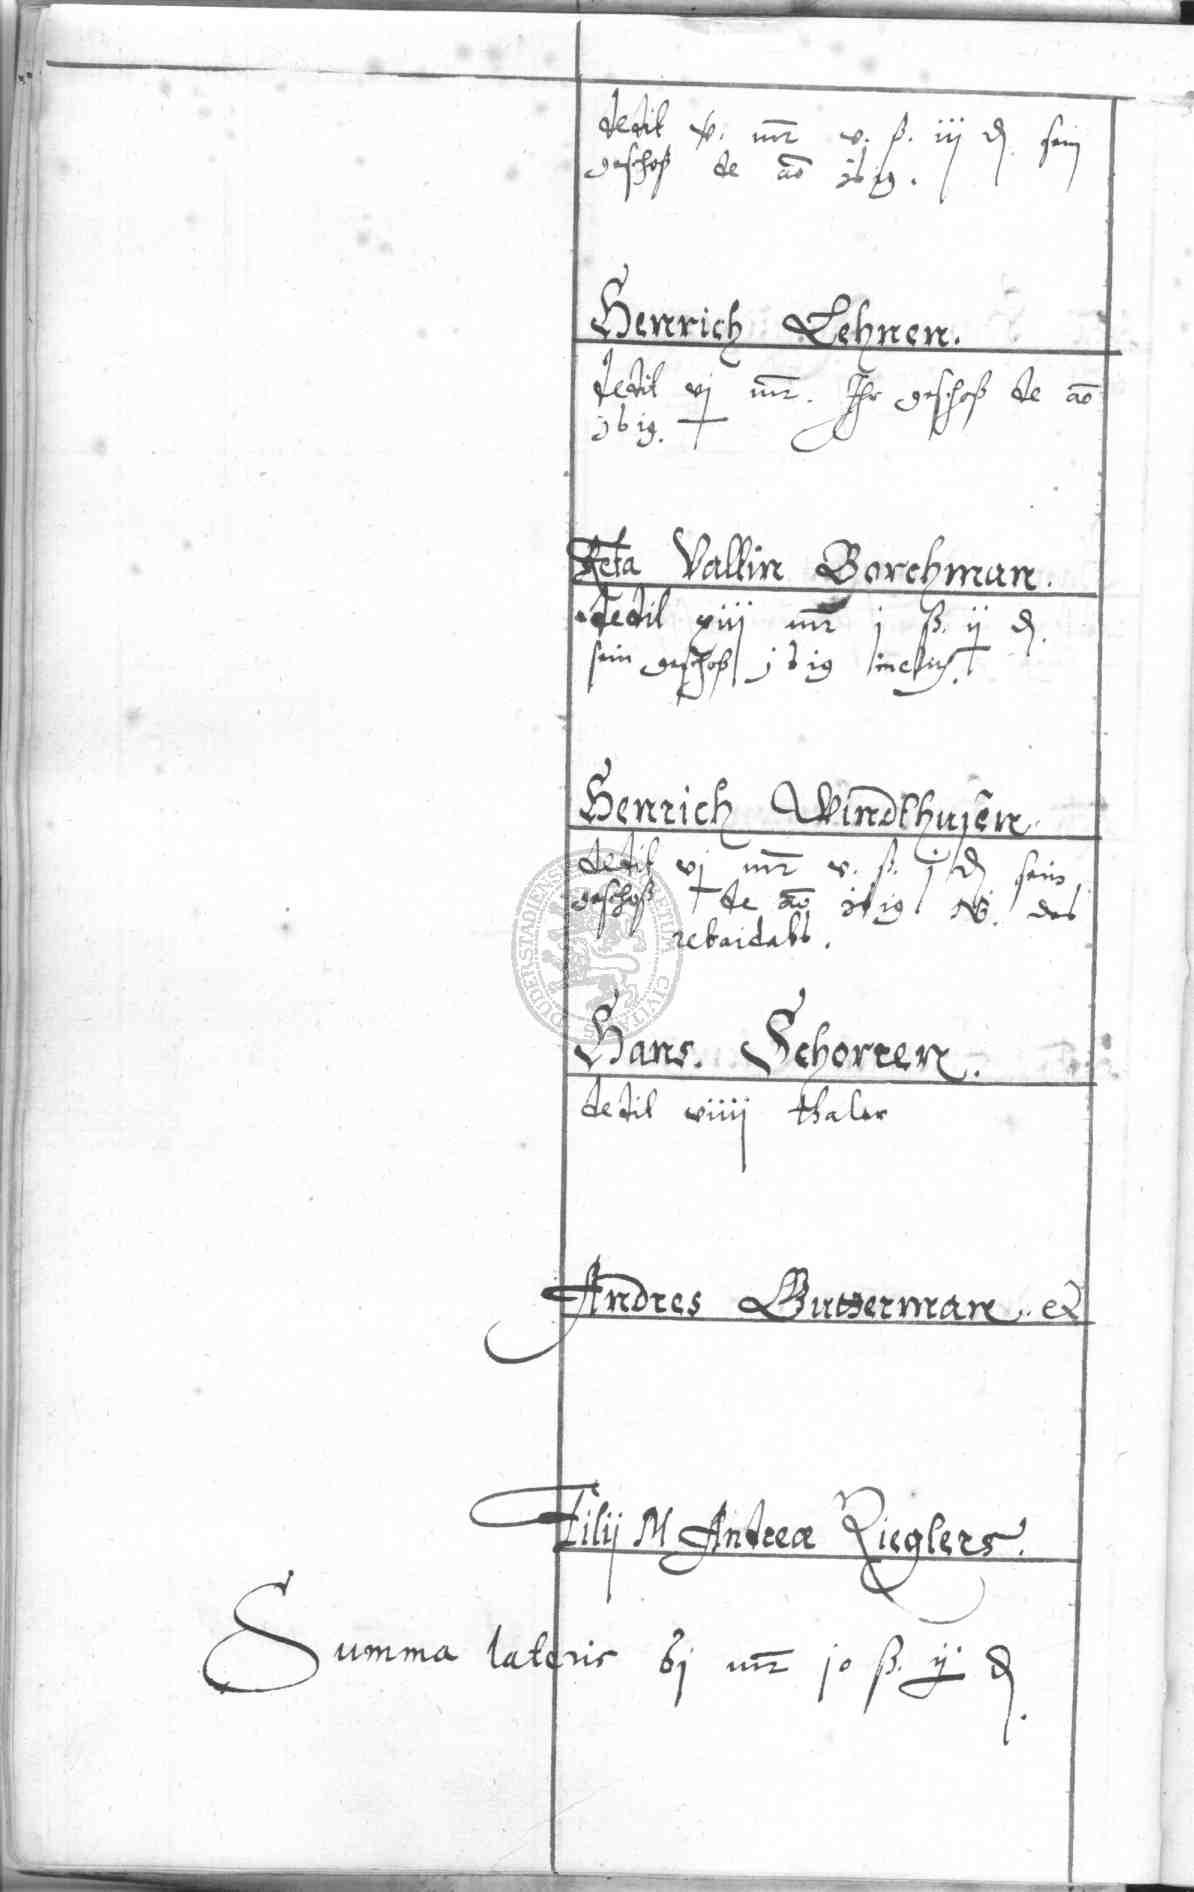 dedit v. mr v. ß. iij d. sein
geschoß de ao 1619.
Henrich Lehnen.
dedit vj mr. Ihr geschoß de ao
1619.
Reta Vallin Borchman.
dedit xiij mr j ß. ij d.
sein geschoß 1619
Henrich Windthusen
dedit vj mr v. ß. j d sein
geschoß de ao 1619 NB. das
Hans. Schorren.
dedit viiij thaler
Andres Gutzerman
Filij M Andreæ Zieglers.
Summa lateris 61 mr 10 ß. ij d.
DUDERSTADIENS CIVITATIS SECRETUM